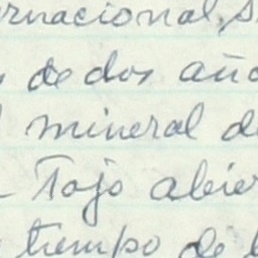 rnacional, s
de dos año
mineral de
Tajo abier
tiempo de